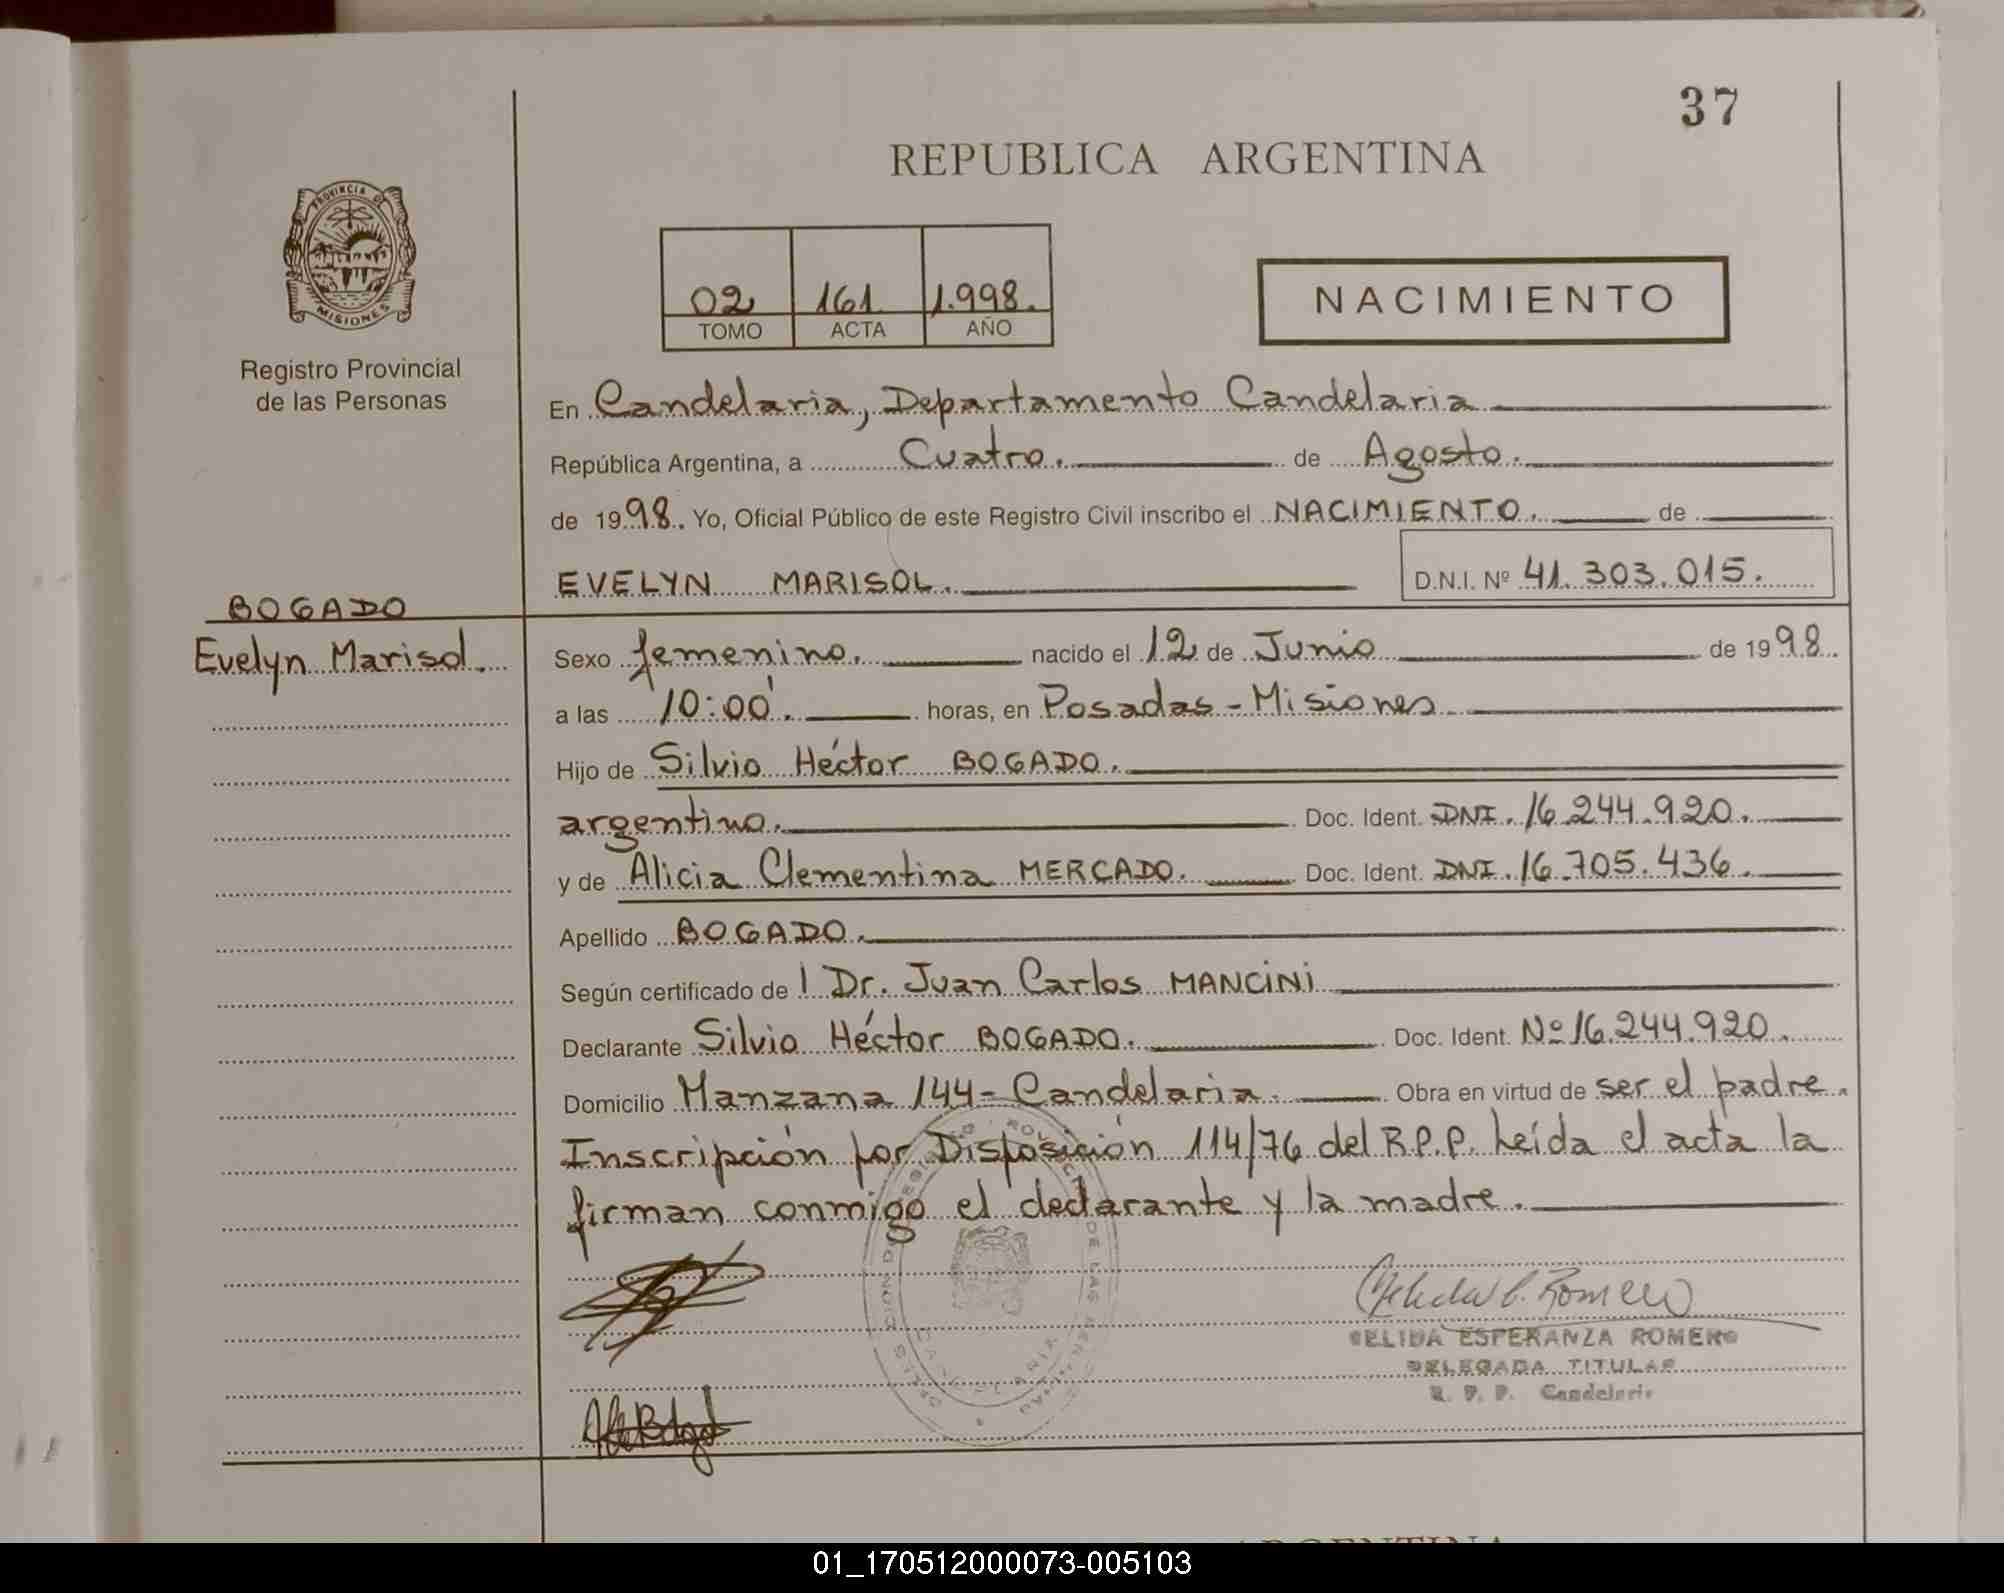 37
REPUBLICA ARGENTINA
PROVINCIA DE
MISIONES
Registro Provincial
de las Personas
02 161 1.998.
TOMO ACTA AÑO
NACIMIENTO
En Candelaria, Departamento Candelaria
República Argentina, a Cuatro. de Agosto.
de 1998. Yo, Oficial Público de este Registro Civil inscribo el NACIMIENTO. de
EVELYN MARISOL. D.N.I. Nº 41.303.015.
BOGADO
Evelyn Marisol.
Sexo femenino. nacido el 12 de Junio de 1998.
a las 10:00'. horas, en Posadas - Misiones
Hijo de Silvio Héctor BOGADO.
argentino. Doc. Ident. DNI. 16.244.920.
y de Alicia Clementina MERCADO. Doc. Ident. DNI. 16.705.436.
Apellido BOGADO.
Según certificado de l Dr. Juan Carlos MANCINI
Declarante Silvio Héctor BOGADO. Doc. Ident. Nº 16.244.920.
Domicilio Manzana 144 - Candelaria. Obra en virtud de ser el padre.
Inscripción por Disposición 114/76 del R.P.P. Leída el acta la
firman conmigo el declarante y la madre.
ESPERANZA ROMERO
DELEGADA TITULAR
R. P. P. Candelaria
ARGENTINA
01_170512000073-005103